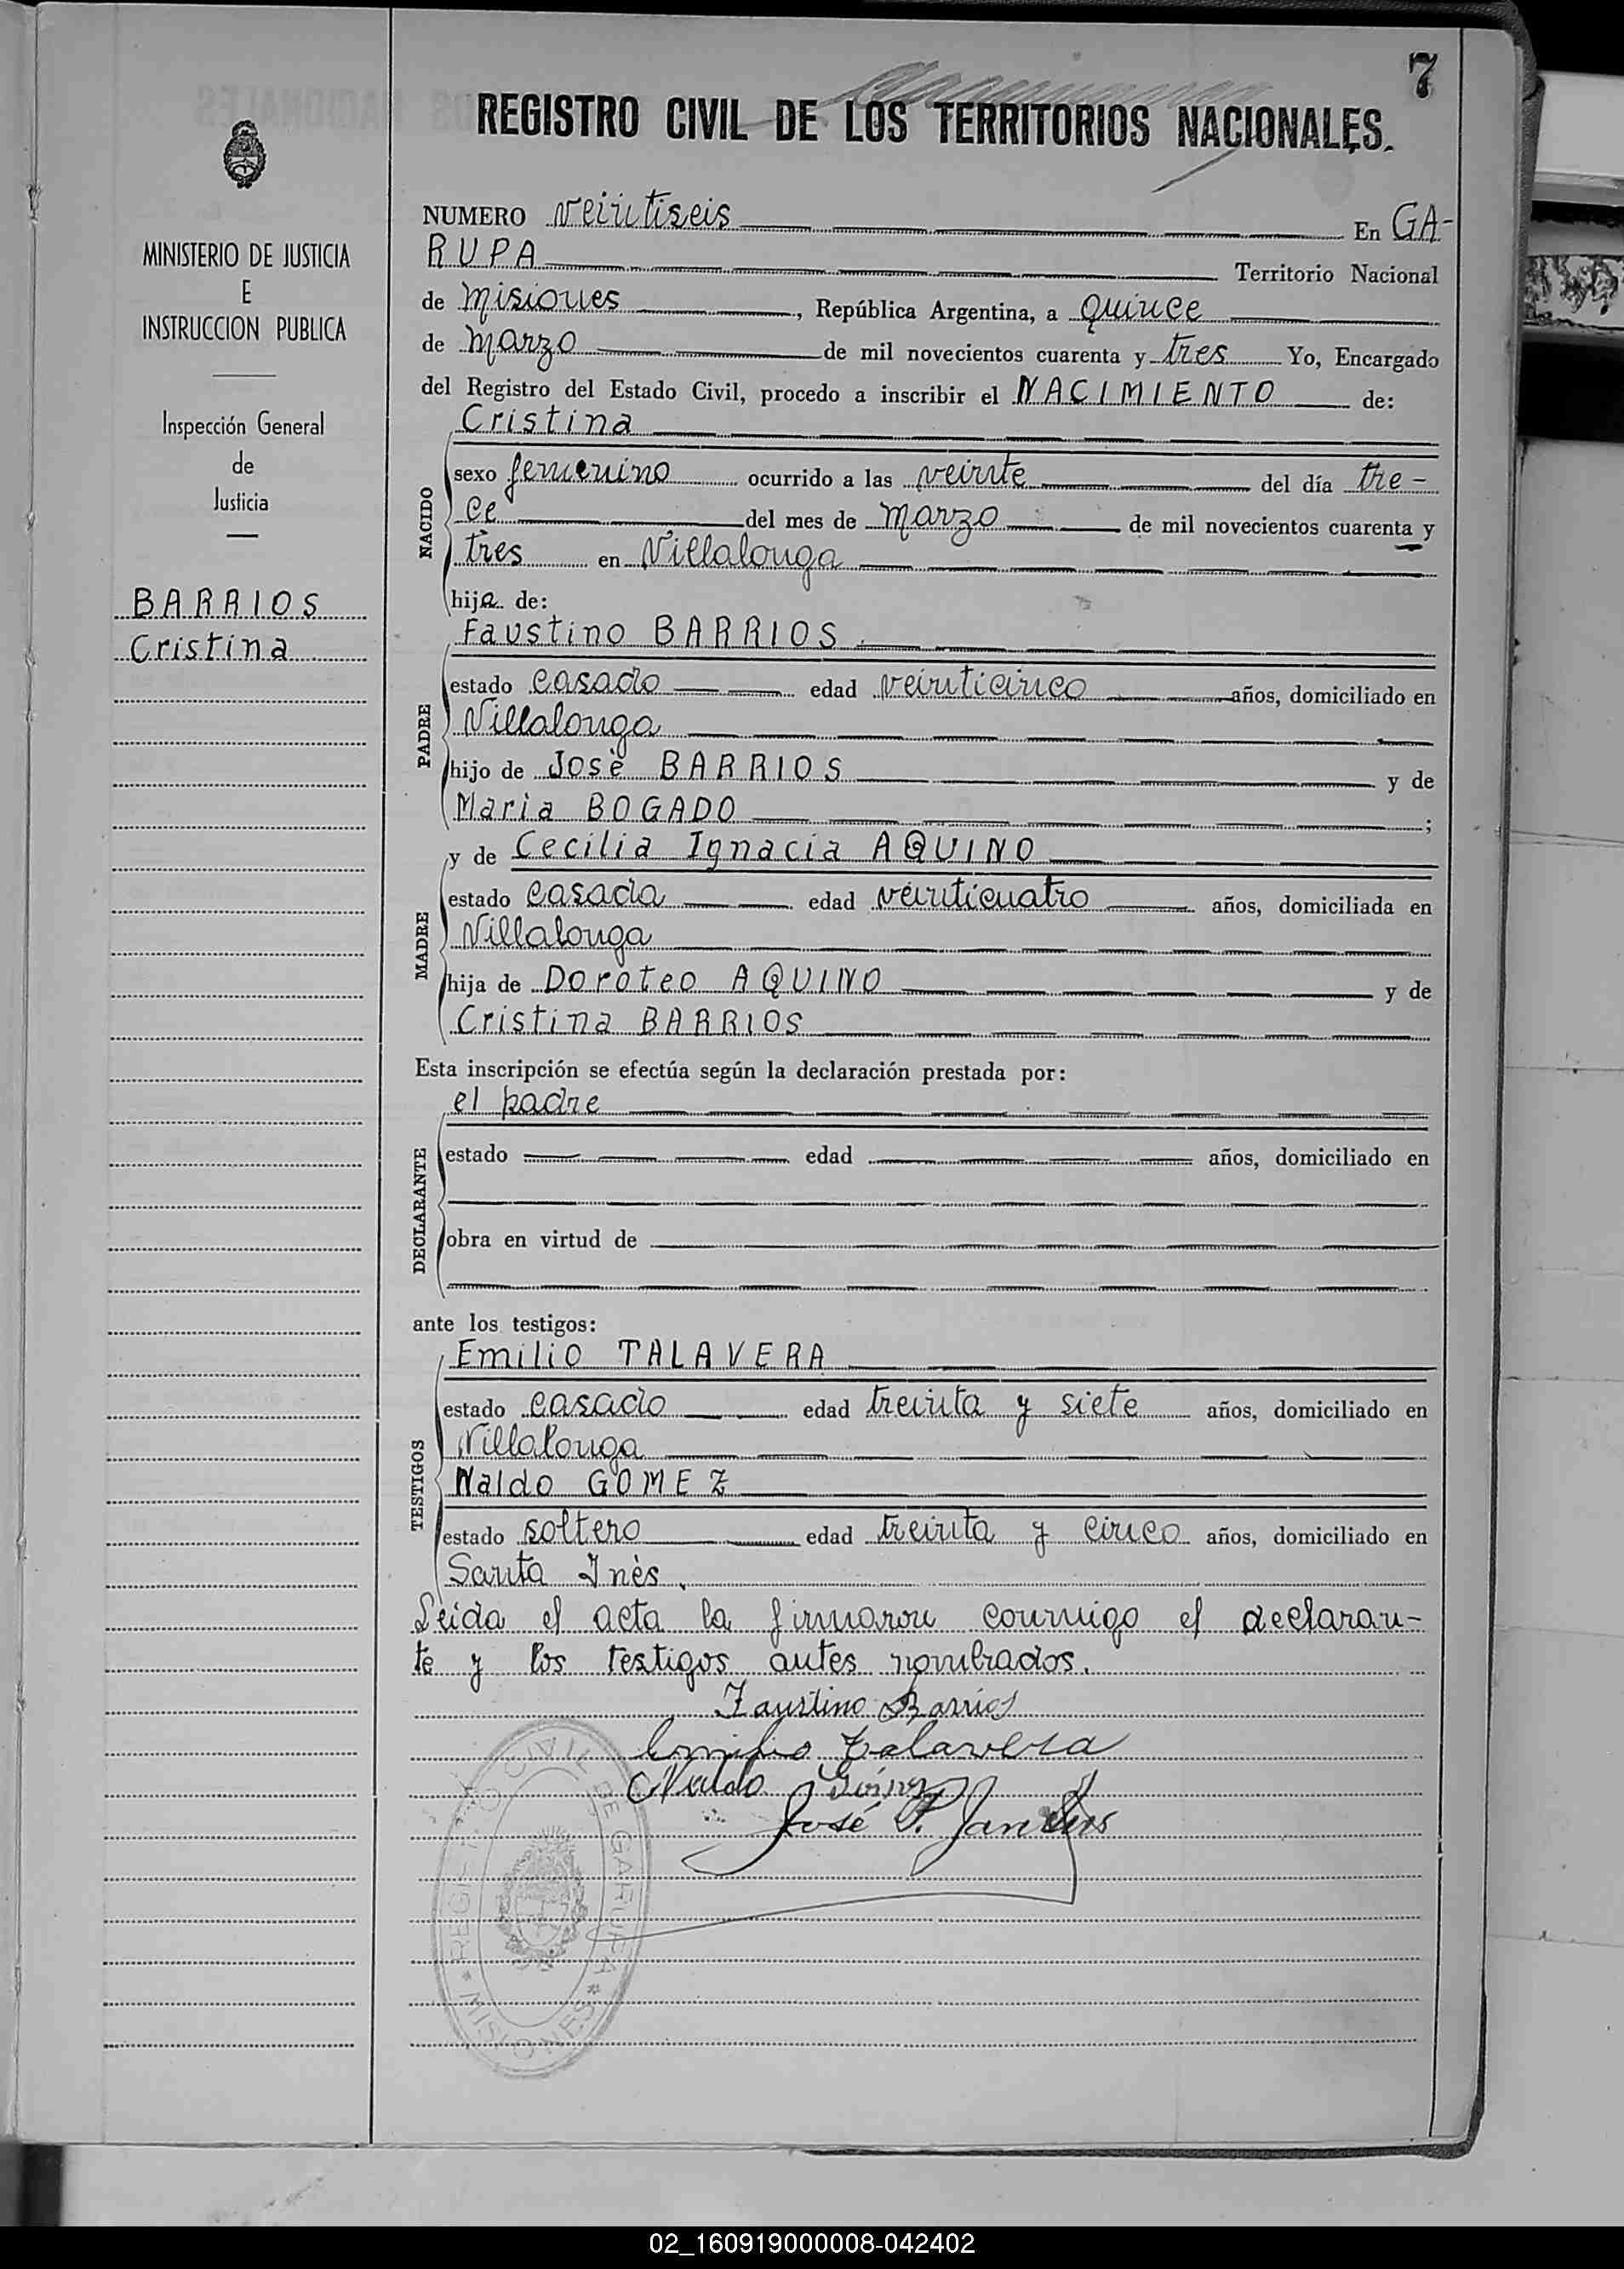 7
REGISTRO CIVIL DE LOS TERRITORIOS NACIONALES.
MINISTERIO DE JUSTICIA
E
INSTRUCCION PUBLICA
Inspección General
de
Justicia
BARRIOS
Cristina
NUMERO veintiseis En GA-
RUPA Territorio Nacional
de Misiones, República Argentina, a quince
de marzo de mil novecientos cuarenta y tres Yo, Encargado
del Registro del Estado Civil, procedo a inscribir el NACIMIENTO de:
Cristina
NACIDO
sexo femenino ocurrido a las veinte del día tre-
ce del mes de marzo de mil novecientos cuarenta y
tres en Villalonga
hija de:
Faustino BARRIOS
PADRE
estado casado edad veinticinco años, domiciliado en
Villalonga
hijo de Josè BARRIOS y de
Marìa BOGADO ;
y de Cecilia Ignacia AQUINO
MADRE
estado casada edad veinticuatro años, domiciliada en
Villalonga
hija de Doroteo AQUINO y de
Cristina BARRIOS
Esta inscripción se efectúa según la declaración prestada por:
el padre
DECLARANTE
estado edad años, domiciliado en
obra en virtud de
ante los testigos:
Emilio TALAVERA
TESTIGOS
estado casado edad treinta y siete años, domiciliado en
Villalonga
Naldo GOMEZ
estado soltero edad treinta y cinco años, domiciliado en
Santa Inès.
Leida el acta la firmaron conmigo el declaran-
te y los testigos antes nombrados.
Faustino Barrios
Emilio Talavera
Naldo Gómez
José P.
REGISTRO CIVIL DE GARUPA
* MISIONES *
02_160919000008-042402